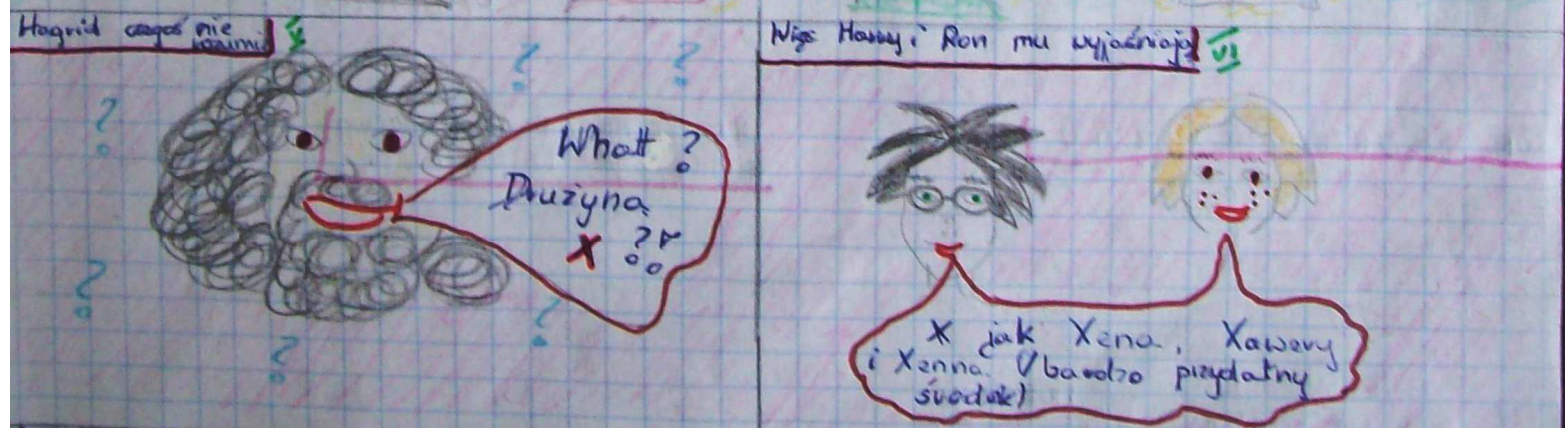 Hagrid czegoś nie
rozumie
V
What ?
Drużyna
X ??
Więc Harry i Ron mu wyjaśniają
VI
X jak Xena, Xawery
i Xenna. (bardzo przydatny
środek)
? ? ? ? ? ?